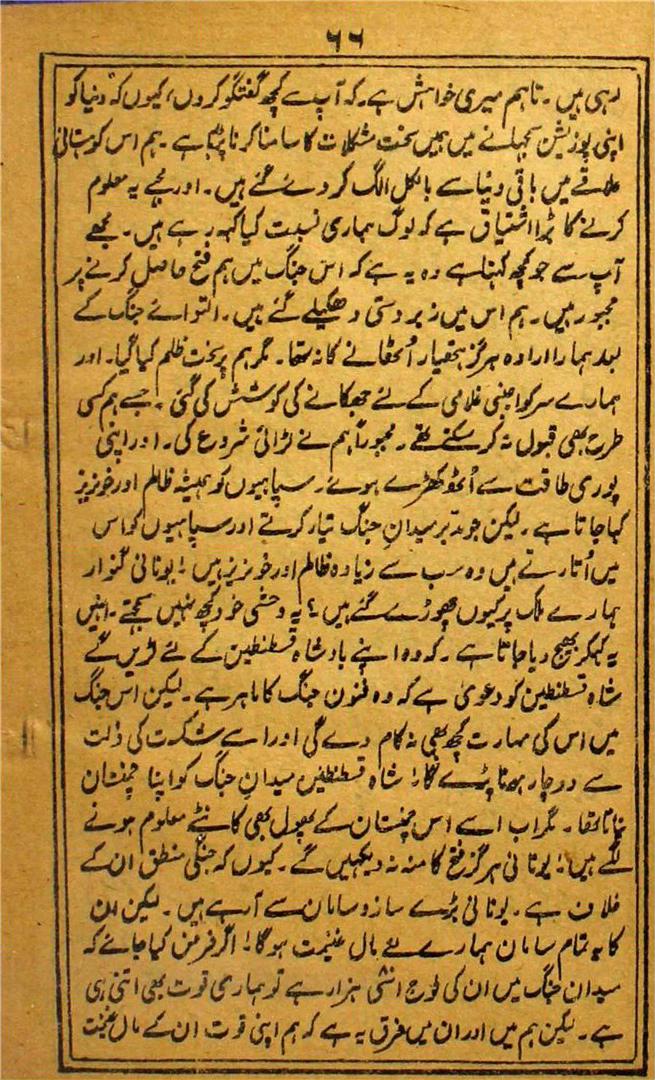 ۶۶
رہی ہیں ۔ تاہم میری خواہش ہے ۔ کہ آپ سے کچھ گفتگو کروں ، کیوں کہ دنیا کو
اپنی پوزیشن سمجھانے میں ہمیں سخت مشکلات کا سامنا کرنا پڑتا ہے ۔ ہم اس کوہستانی
علاقے میں باقی دنیا سے بالکل الگ کر دئے گئے ہیں ۔ اور مجھے یہ معلوم
کرنے کا بڑا اشتیاق ہے کہ لوگ ہماری نسبت کیا کہہ رہے ہیں ۔ مجھے
آپ سے جو کچھ کہنا ہے وہ یہ ہے کہ اس جنگ میں ہم فتح حاصل کرنے پر
مجبور ہیں ۔ ہم اس میں زبردستی دھکیلے گئے ہیں ۔ التوائے جنگ کے
بعد ہمارا ارادہ ہرگز ہتھیار اُٹھانے کا نہ تھا ۔ مگر ہم پر سخت ظلم کیا گیا ۔ اور
ہمارے سر کو اجنبی غلامی کے لئے جھکانے کی کوشش کی گئی ۔ جسے ہم کسی
طرح بھی قبول نہ کر سکتے تھے ۔ مجبوراً ہم نے لڑائی شروع کی ۔ اور اپنی
پوری طاقت سے اُٹھ کھڑے ہوئے ۔ سپاہیوں کو ہمیشہ ظالم اور خونریز
کہا جاتا ہے ۔ لیکن جو مدبر میدانِ جنگ تیار کرتے اور سپاہیوں کو اس
میں اُتارتے ہیں وہ سب سے زیادہ ظالم اور خونریز ہیں ! یونانی گنوار
ہمارے ملک پر کیوں چھوڑے گئے ہیں ؟ یہ وحشی خود کچھ نہیں سمجھتے ۔ انہیں
یہ کہکر بھیج دیا جاتا ہے ۔ کہ وہ اپنے بادشاہ قسطنطین کے لئے لڑیں گے
شاہ قسطنطین کو دعویٰ ہے کہ وہ فنون جنگ کا ماہر ہے ۔ لیکن اس جنگ
میں اس کی مہارت کچھ بھی نہ کام دے گی اور اسے شکست کی ذلت
سے دوچار ہونا پڑے گا ! شاہ قسطنطین میدانِ جنگ کو اپنا چمنستان
بناتا تھا ۔ مگر اب اسے اس چمنستان کے پھول بھی کانٹے معلوم ہونے
لگے ہیں ! یونانی ہرگز فتح کا منہ نہ دیکھیں گے ۔ کیوں کہ جنگی منطق ان کے
خلاف ہے ۔ یونانی بڑے ساز و سامان سے آرہے ہیں ۔ لیکن ان
کا یہ تمام سامان ہمارے لئے مال غنیمت ہو گا ! اگر فرض کیا جائے کہ
میدان جنگ میں ان کی فوج اسّی ہزار ہے تو ہماری قوت بھی اتنی ہی
ہے ۔ لیکن ہم میں اور ان میں فرق یہ ہے کہ ہم اپنی قوت ان کے مال غنیمت